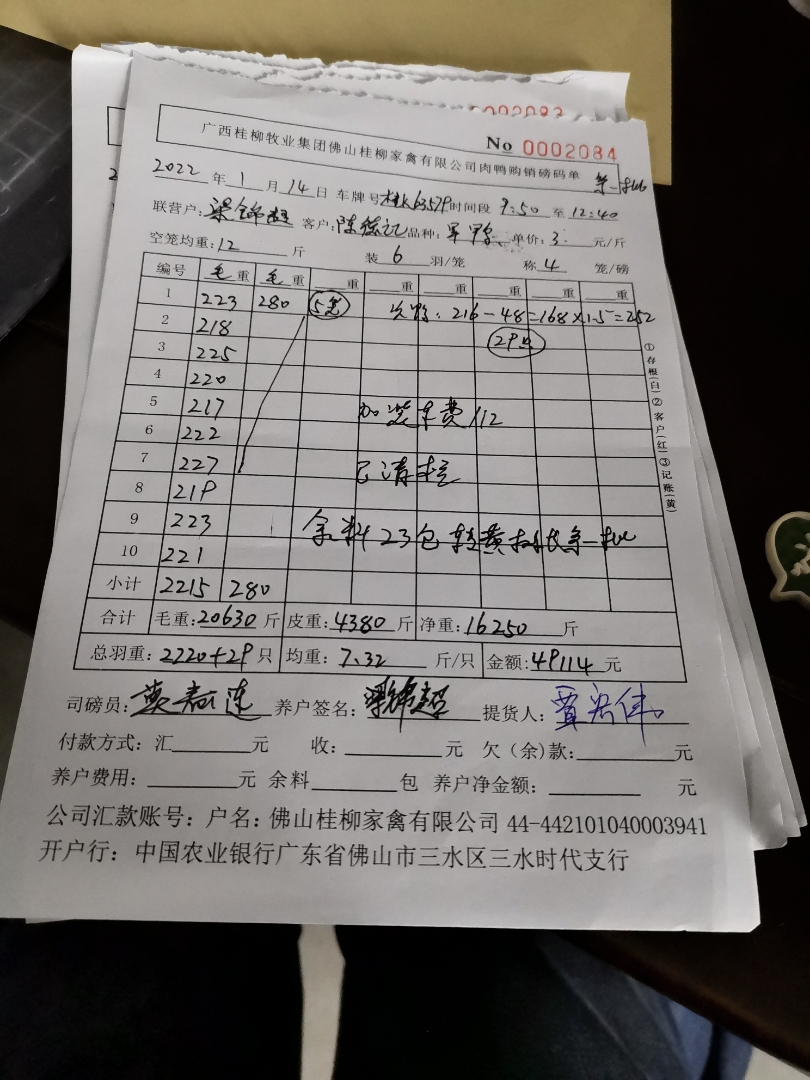 0002083
No 0002084
广西桂柳牧业集团佛山桂柳家禽有限公司肉鸭购销磅码单
第一批
2022年1月14日 车牌号桂K63579时间段 9:50 至 12:40
联营户: 梁锦超 客户: 陈练记 品种: 单价: 3. 元/斤
空笼均重: 12 斤 装 6 羽/笼 称 4 笼/磅
编号 毛重 毛重 重 重 重 重 重 重
1 223 280 5笼 次鸭: 216-48=168×1.5=252
2 218 29只
3 225
4 220
5 217 加装车费112
6 222
7 227 已清栏
8 219
9 223 余料23包转黄 第一批
10 221
小计 2215 280
合计 毛重: 20630 斤 皮重: 4380 斤 净重: 16250 斤
总羽重: 2220+29 只 均重: 7.32 斤/只 金额: 49114 元
司磅员: 养户签名: 梁锦超 提货人:
付款方式: 汇 元 收: 元 欠(余)款: 元
养户费用: 元 余料 包 养户净金额: 元
公司汇款账号: 户名: 佛山桂柳家禽有限公司 44-442101040003941
开户行: 中国农业银行广东省佛山市三水区三水时代支行
①存根(白)②客户(红)③记账(黄)